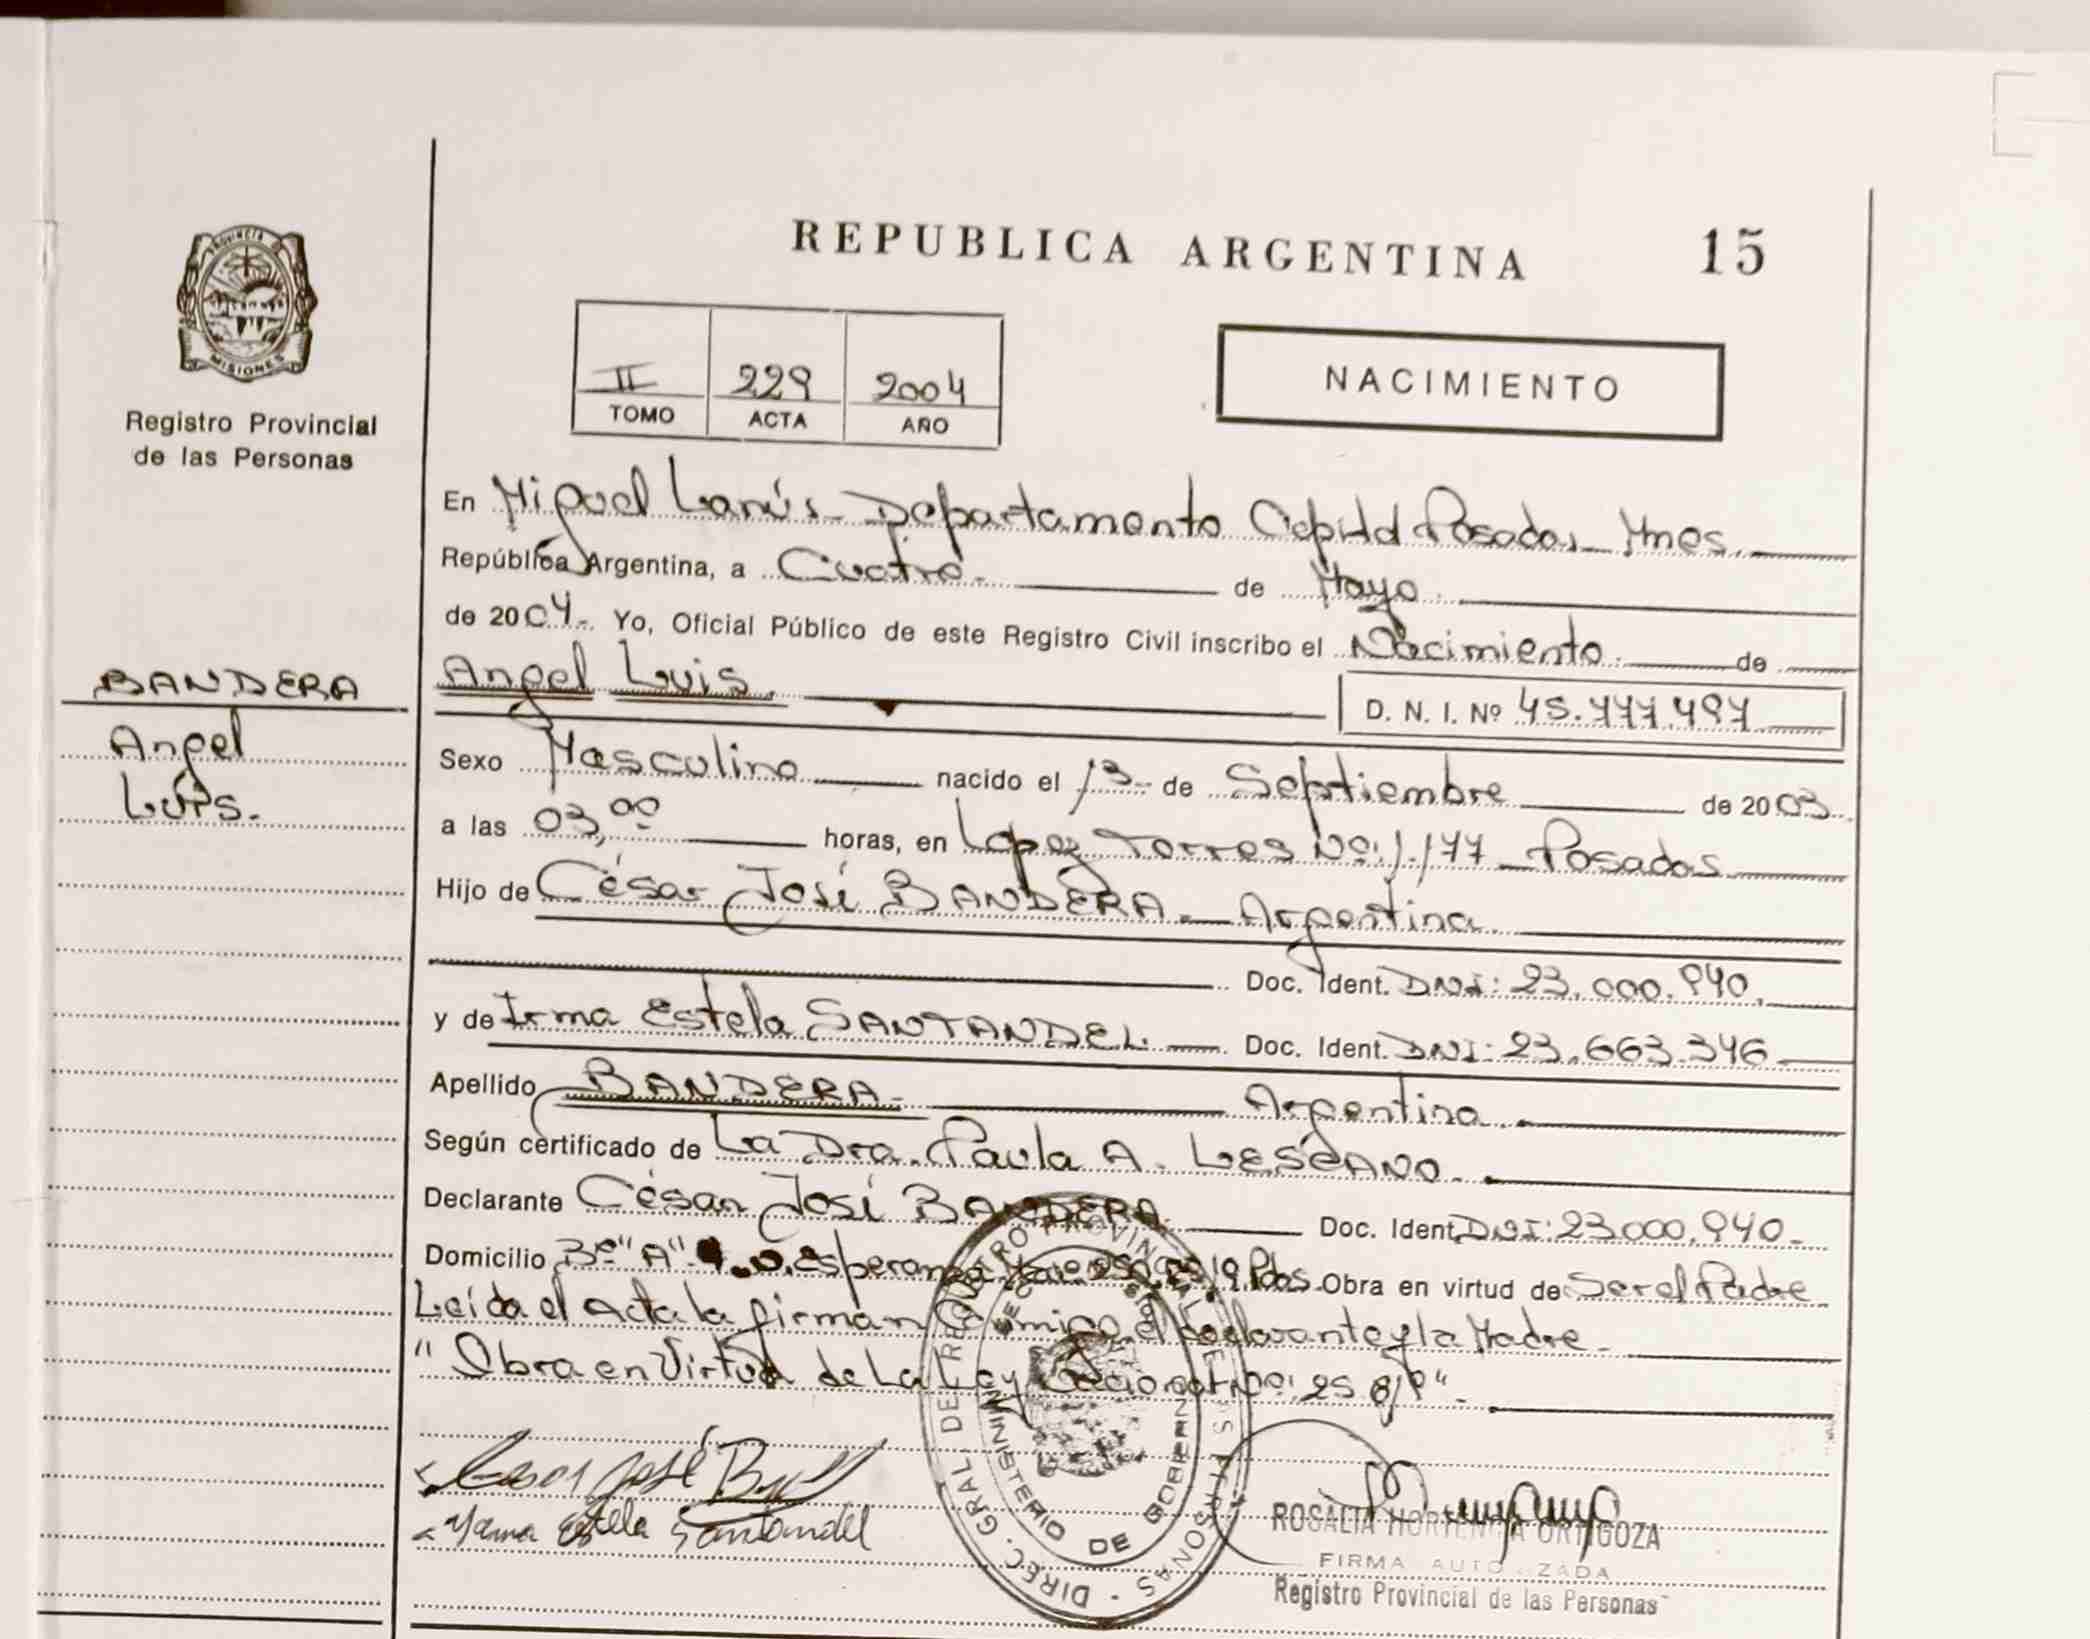 REPUBLICA ARGENTINA 15
PROVINCIA
MISIONES
Registro Provincial
de las Personas
II 229 2004
TOMO ACTA AÑO
NACIMIENTO
En Miguel Lanús - Departamento Capital Posadas - Mnes.
República Argentina, a Cuatro de Mayo
de 2004. Yo, Oficial Público de este Registro Civil inscribo el Nacimiento de
BANDERA
Angel
Luis.
Angel Luis.
D. N. I. Nº 45.777.497
Sexo Masculino nacido el 13 de Septiembre de 2003
a las 03,00 horas, en Lopez Torres Nº: 1.177 - Posadas
Hijo de César José BANDERA - Argentina
Doc. Ident. DNI: 23.000.940.
y de Irma Estela SANTANDEL Doc. Ident. DNI: 23.663.346
Apellido BANDERA Argentina
Según certificado de La Dra. Paula A. LESCANO.
Declarante César José BANDERA Doc. Ident. DNI: 23.000.940.
Domicilio Bº "A" Esperanza Pdas. Obra en virtud de Ser el Padre
Leída el Acta la firman Conmigo el declarante y la Madre
"Obra en Virtud de La Ley Nacional Nº: 25.819".
César José
Irma Estela Santandel
DIREC. GRAL. DE REGISTRO PROVINCIAL DE LAS PERSONAS
MINISTERIO DE GOBIERNO
ROSALIA HORTENCIA ORTIGOZA
FIRMA AUTORIZADA
Registro Provincial de las Personas